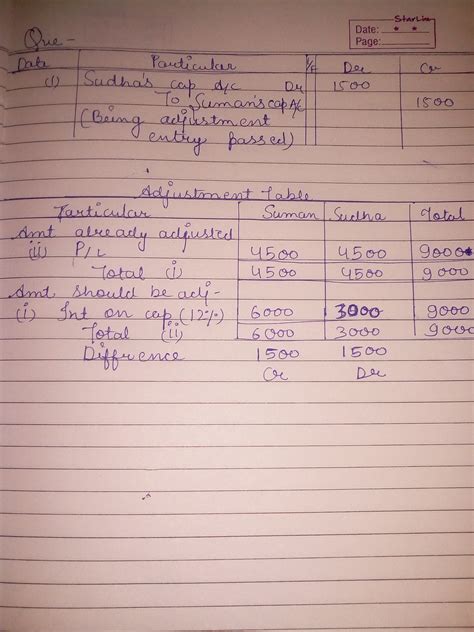 StarLine
Date:
Page:
Que -
Date Particular L/F Dr Cr
(1) Sudha's cap A/c Dr 1500
To Suman's cap A/c 1500
(Being adjustment
entry passed)
Adjustment Table
Particular Suman Sudha Total
Amt already adjusted
(ii) P/L 4500 4500 9000
Total (i) 4500 4500 9000
Amt should be adj-
(i) Int on cap (12%) 6000 3000 9000
Total (ii) 6000 3000 9000
Diffrence 1500 1500
Cr Dr